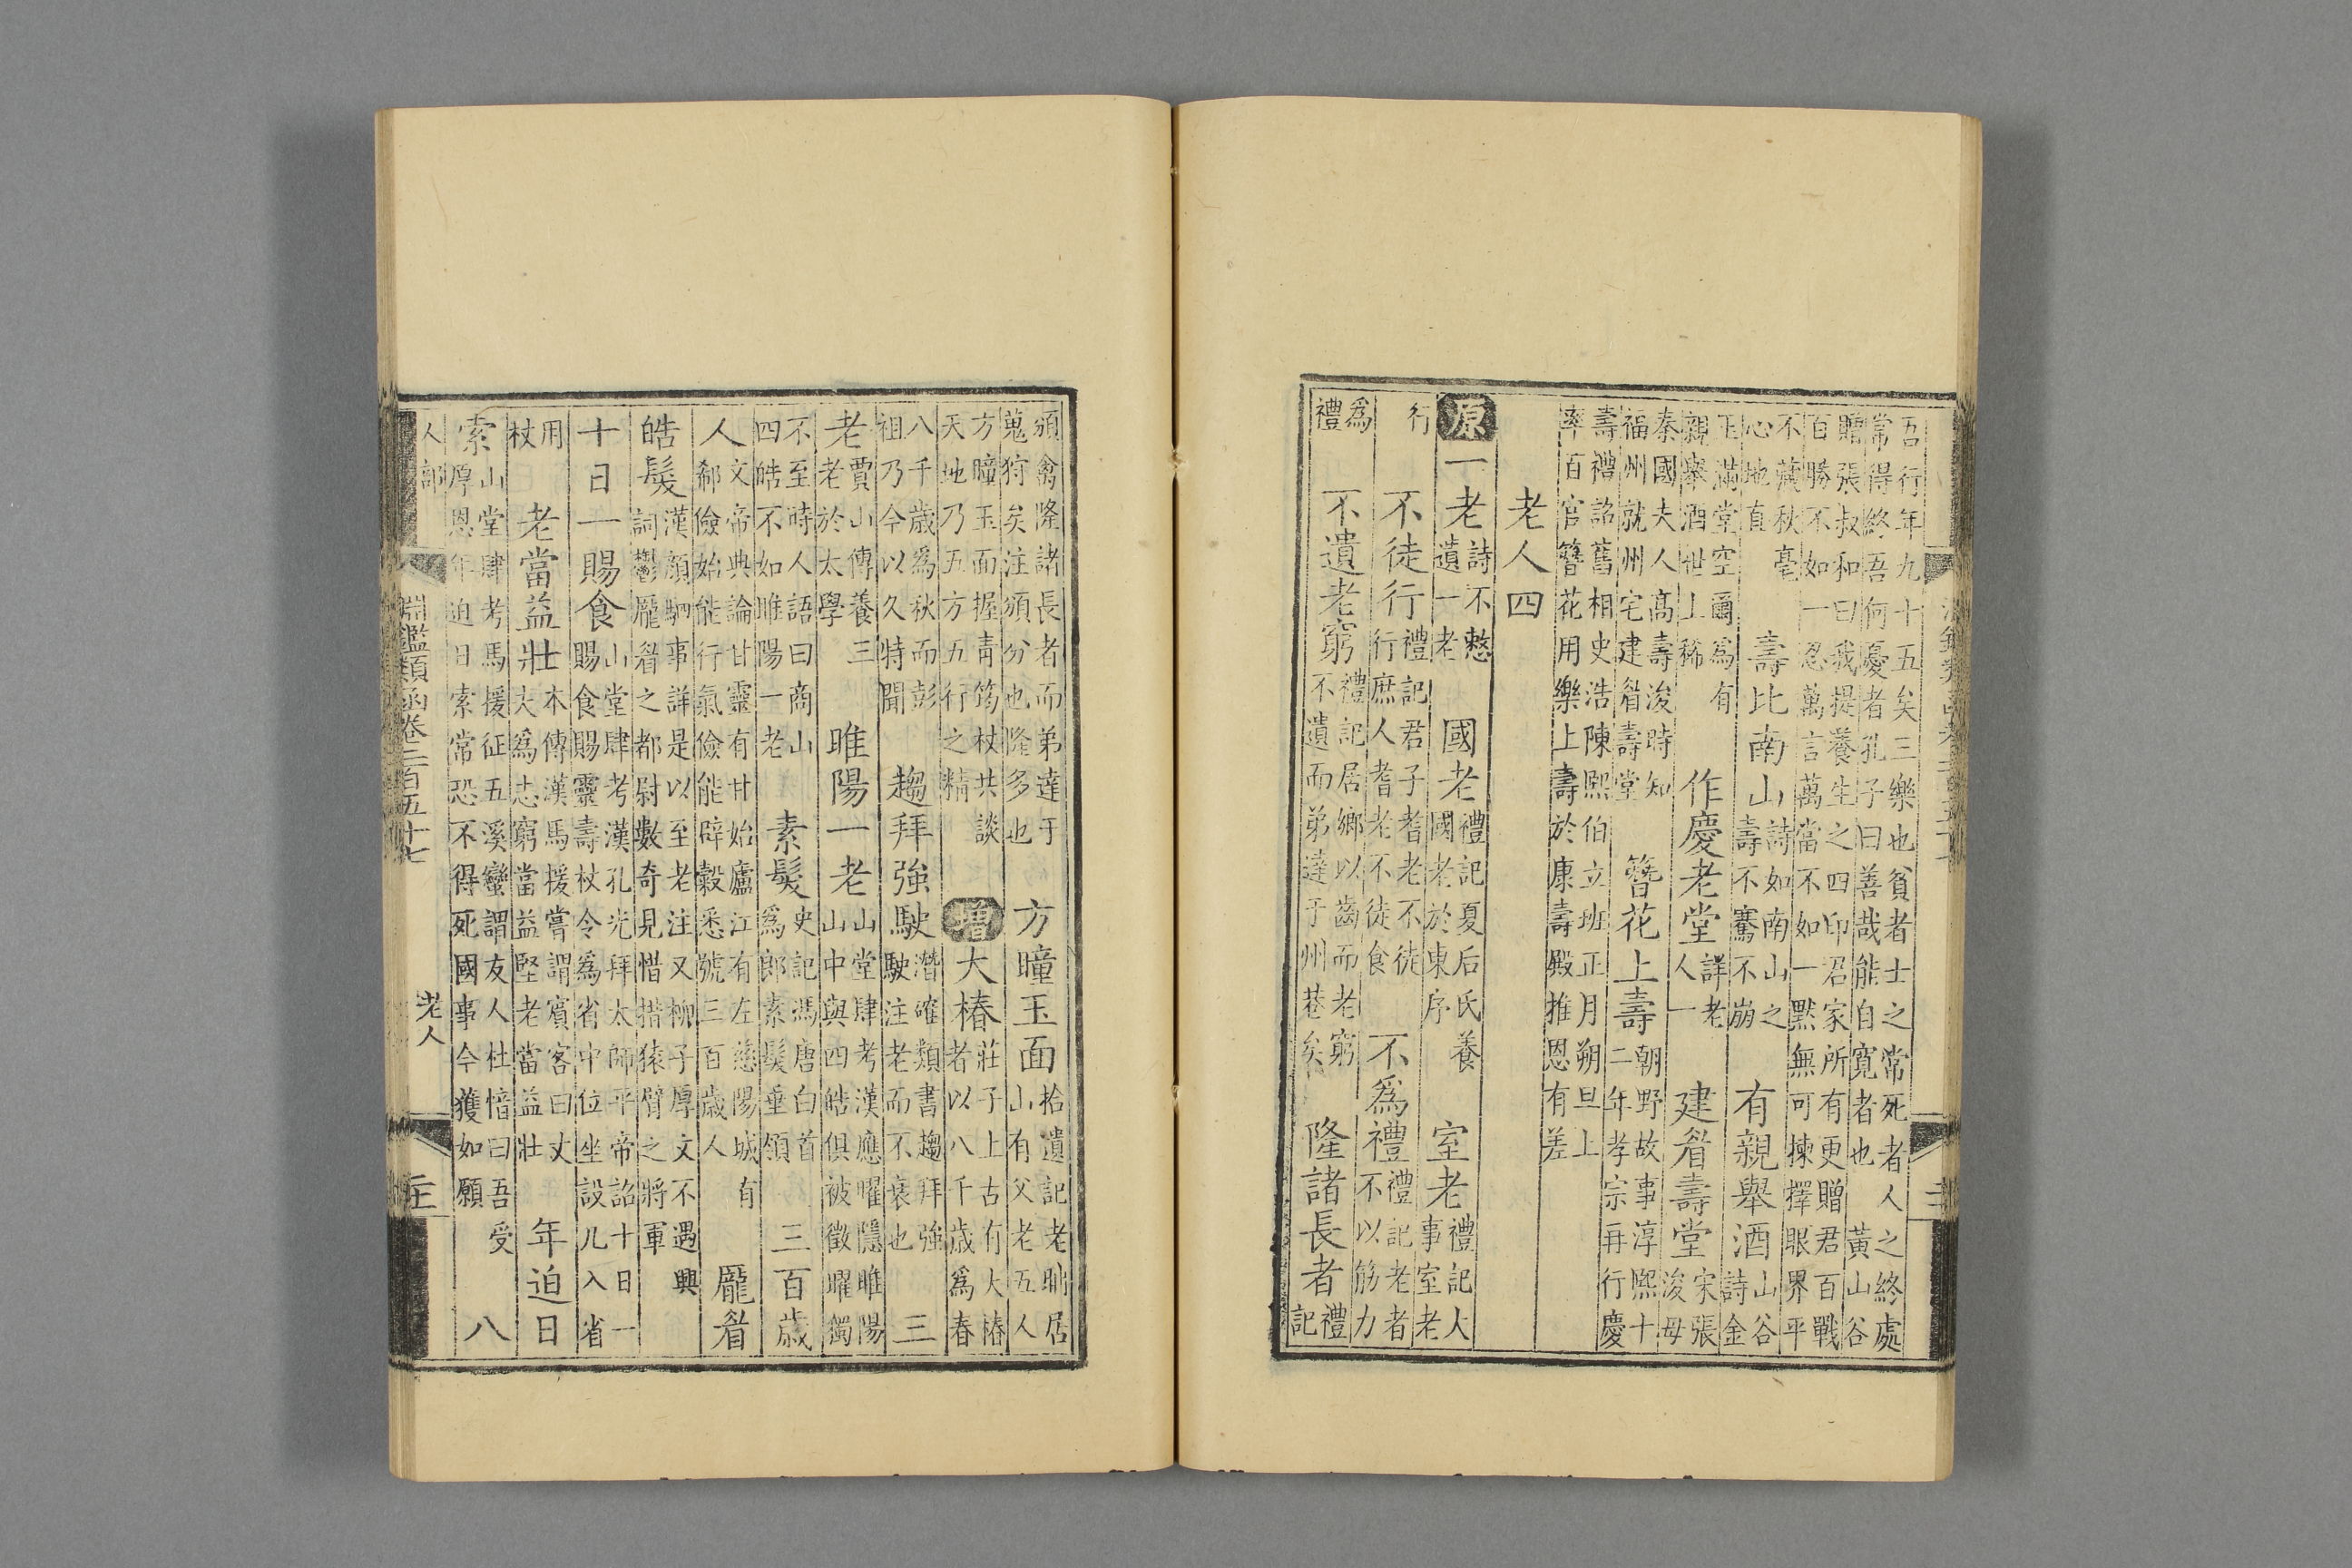 吾行年九十五矣三樂也貧者士之常死者人之終處
常得終吾何憂者孔子曰善哉能自寬者也 黃山谷
贈張叔和曰我提養生之四印君家所有更贈君百戰
百勝不如一忍萬言萬當不如一默無可揀擇眼界平
不藏秋毫心地直 壽比南山 詩如南山之壽不騫不崩 有親舉酒 山谷詩金
玉滿堂空爾為有親舉酒世上稀 作慶老堂 詳老人一 建眉壽堂 宋張浚母
秦國夫人高壽浚時知福州就州宅建眉壽堂 簪花上壽 朝野故事淳熙十二年孝宗再行慶
壽禮詔舊相史浩陳熙伯立班正月朔旦上
率百官簪花用樂上壽於康壽殿推恩有差
老人四
原 一老 詩不憗遺一老 國老 禮記夏后氏養國老於東序 室老 禮記大事室老
行 不徒行 禮記君子耆老不徒行庶人耆老不徒食 不爲禮 禮記老者不以筋力
爲禮 不遺老窮 禮記居鄉以齒而老窮不遺而弟達于州巷矣 隆諸長者 禮記
頒禽隆諸長者而弟達于蒐狩矣注頒分也隆多也 方瞳玉面 拾遺記老聃居山有父老五人
方瞳玉面握青筠杖共談天地乃五方五行之精 增 大椿 莊子上古有大椿者以八千歲爲春
八千歲爲秋而彭祖乃今以久特聞 趨拜強駛 潛確類書趨拜強駛注老而不衰也 三
老 賈山傳養三老於太學 睢陽一老 山堂肆考漢應曜隱睢陽山中與四皓俱被徵曜獨
不至時人語曰商山四皓不如睢陽一老 素髮 史記馮唐白首爲郎素髮垂領 三百歲
人 文帝典論甘靈有甘始廬江有左慈陽城有郗儉始能行氣儉能辟穀悉號三百歲人 龐眉
皓髮 漢顏駟事詳是以至老注又柳子厚文不遇興詞鬱龐眉之都尉數奇見惜措猿臂之將軍
十日一賜食 山堂肆考漢孔光拜太師平帝詔十日一賜食賜靈壽杖令爲省中位坐設几入省
用杖 老當益壯 本傳漢馬援嘗謂賓客曰丈夫爲志窮當益堅老當益壯 年迫日
索 山堂肆考馬援征五溪蠻謂友人杜愔曰吾受厚恩年迫日索常恐不得死國事今獲如願 八
人部 淵鑑類函卷二百五十七 老人